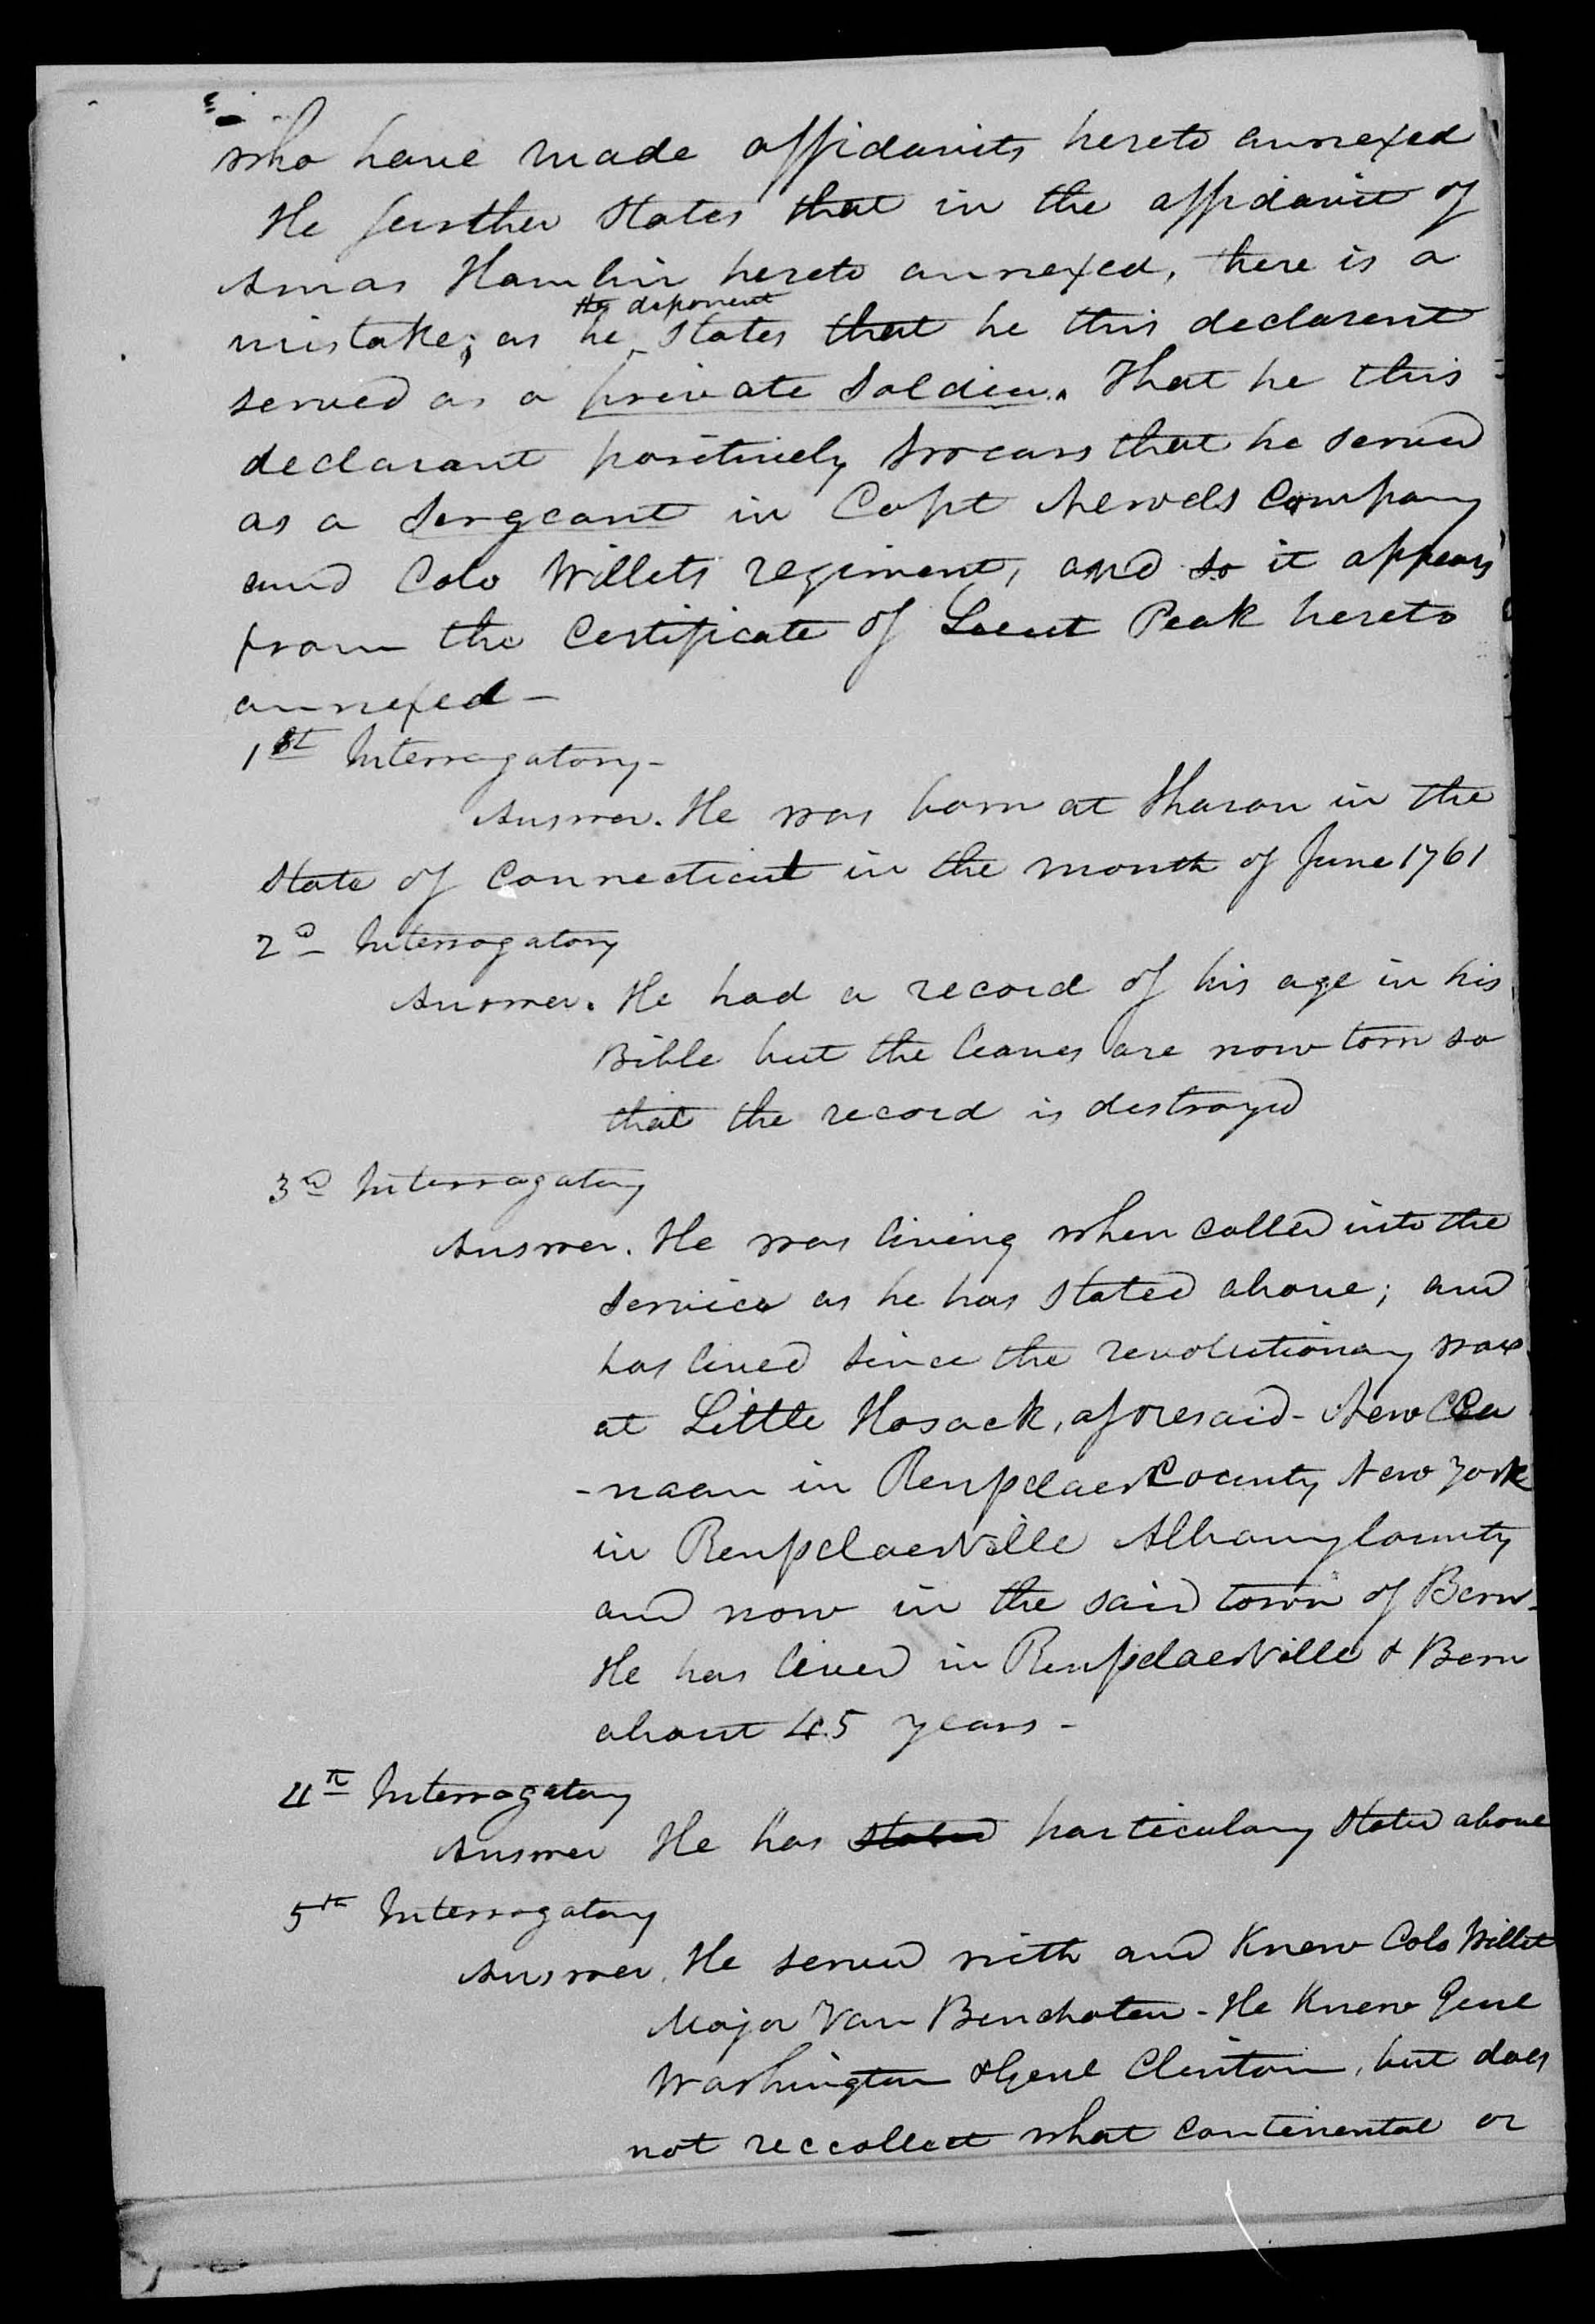 who have made affidavits hereto annexed
He further states that in the affidavit of
Amas Hamlin hereto annexed, there is a
the deponent
mistake; as he states that he this declarent
served as a private soldier. That he this
declarant positively swears that he served
as a Sergeant in Capt Company
and Colo Willets regiment, and so it appears
from the Certificate of Lieut Peak hereto
annexed -
1st Interrogatory -
Answer. He was born at Sharon in the
State of Connecticut in the month of June 1761
2d Interrogatory
Answer. He had a record of his age in his
Bible but the leaves are now torn so
that the record is destroyed
3d Interrogatory
Answer. He was living when called into the
service as he has stated above; and
has lived since the revolutionary war
at Little Hosack, aforesaid - New Ca
-naan in Rensselaer County New York
in RensselaerVille Albany County
and now in the said town of Bern -
He has lived in RensselaerVille & Bern
about 45 years -
4th Interrogatory
Answer He has stated particulary stated above
5th Interrogatory
Answer. He served with and Knew Colo Willet
Major Van Benchoten - He Knew Genl
Washington & Genl Clinton, but does
not reccollect what continental or